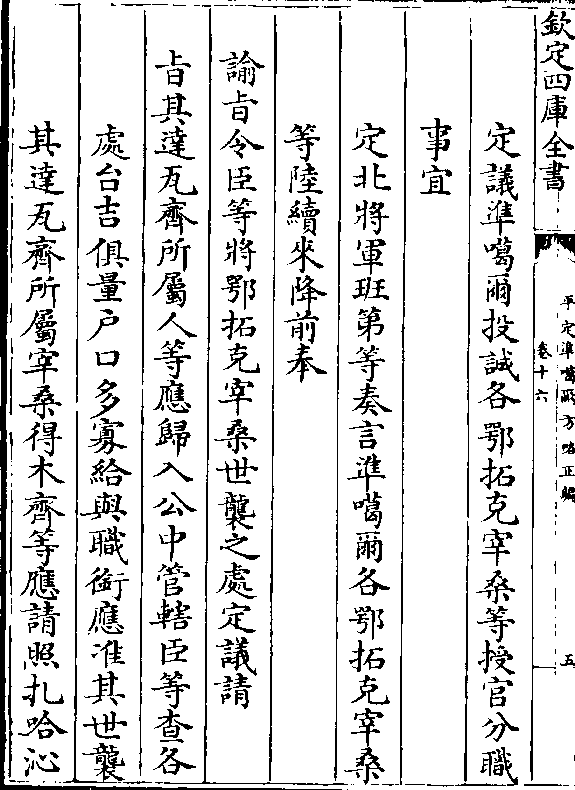 欽定四庫全書
平定準噶爾方略正編
卷十六
五
定議準噶爾投誠各鄂拓克宰桑等授官分職
事宜
定北將軍班第等奏言準噶爾各鄂拓克宰桑
等陸續來降前奉
諭旨令臣等將鄂拓克宰桑世襲之處定議請
旨其達瓦齊所屬人等應歸入公中管轄臣等查各
處台吉俱量户口多寡給與職銜應准其世襲
其達瓦齊所屬宰桑得木齊等應請照扎哈沁